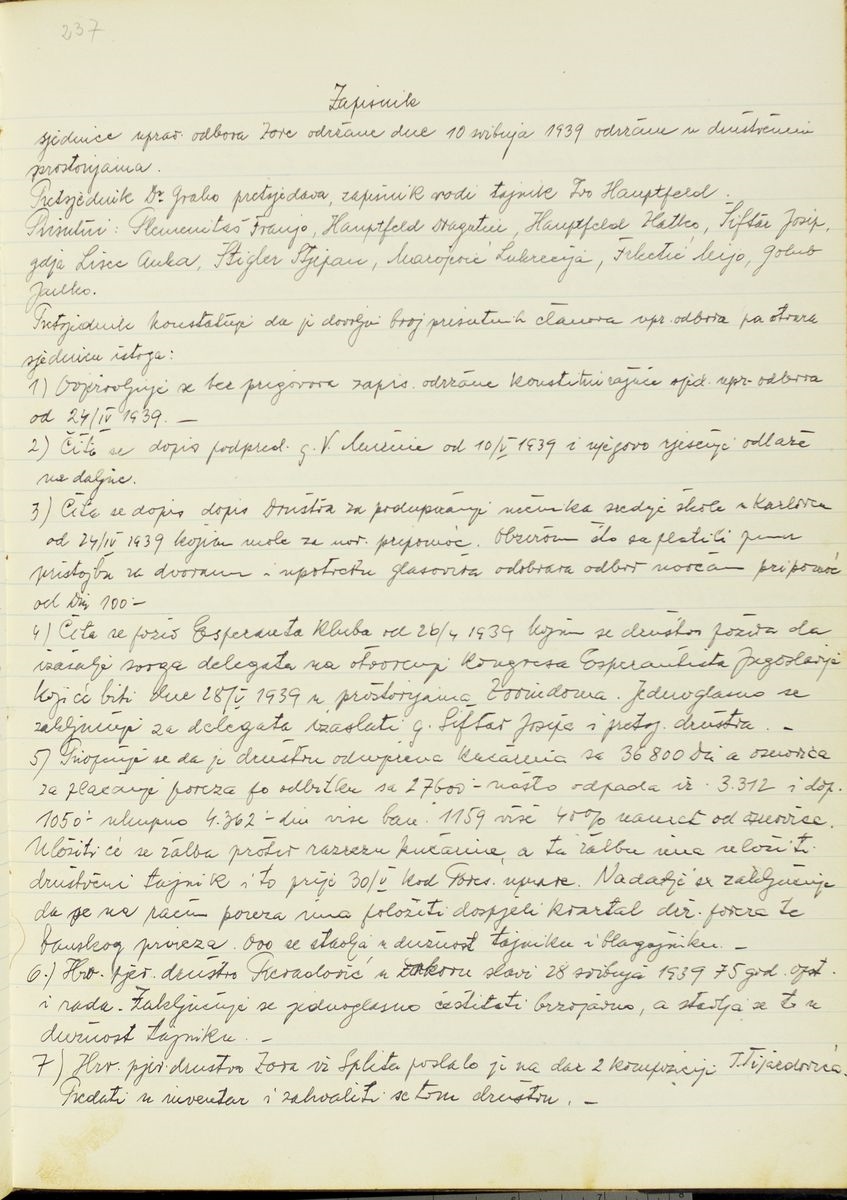 237
Zapisnik
sjednice uprav. odbora Zore održane dne 10 svibnja 1939 održane u društvenim
prostorijama.
Pretsjednik Dr Grabo pretsjedava, zapisnik vodi tajnik Ivo Hauptfeld.
Prisutni: Plemenitaš Franjo, Hauptfeld Dragutin, Hauptfeld Ratko, Šiftar Josip,
gdja Lisec Anka, Štigler Stjepan, Maropović Lukrecija, Frketić Mijo, Golub
Janko.
Pretsjednik konstatuje da je dovoljni broj prisutnih članova upr. odbora pa otvara
sjednicu istoga:
1) Ovjerovljuje se bez prigovora zapis. održane konstituirajuće sjed. upr. odbora
od 24/IV 1939. —
2) Čita se dopis podpred. g. V. od 10/V 1939 i njegovo rješenje odlaže
na dalje.
3) Čita se dopis dopis Društva za podupiranje učenika srednje škole u Karlovcu
od 24/IV 1939 kojim mole za nov. pripomoć. Obzirom što su platili punu
pristojbu za dvoranu i upotrebu glasovira odobrava odbor novčanu pripomoć
od Din 100.-
4) Čita se poziv Esperanta kluba od 26/4 1939 kojim se društvo poziva da
izašalje svoga delegata na otvorenje kongresa Esperantista Jugoslavije
koji će biti dne 28/V 1939 u prostorijama Zorindoma. Jednoglasno se
zaključuje za delegata izaslati g. Šiftar Josipa i pretsj. društva. —
5) Provjenje se da je društvu odmjerena kućarina sa 36800 Din a osnovica
za plaćanje poreza po odbitku sa 27600.- našto odpada iz. 3.312 i dop.
1050.- ukupno 4.362.- din više ban. 1159 više 40% namet od osnovice.
Uložiti će se žalba protiv razreza kućarine, a tu žalbu ima uložiti
društveni tajnik i to prije 30/V kod Pores. uprave. Nadalje se zaključuje
da se na račun poreza ima položiti dospjeli kvartal drž. poreza te
banskog prireza. Ovo se stavlja u dužnost tajniku i blagajniku. —
6.) Hrv. pjev. društvo Preradović u slavi 28 svibnja 1939 75 god. opst.
i rada. Zaključuje se jednoglasno čestitati brzojavno, a stavlja se to u
dužnost tajniku. —
7) Hrv. pjev. društvo Zora iz Splita poslalo je na dar 2 kompozicije I. Tijardovića.
Predati u inventar i zahvaliti se tom društvu. —